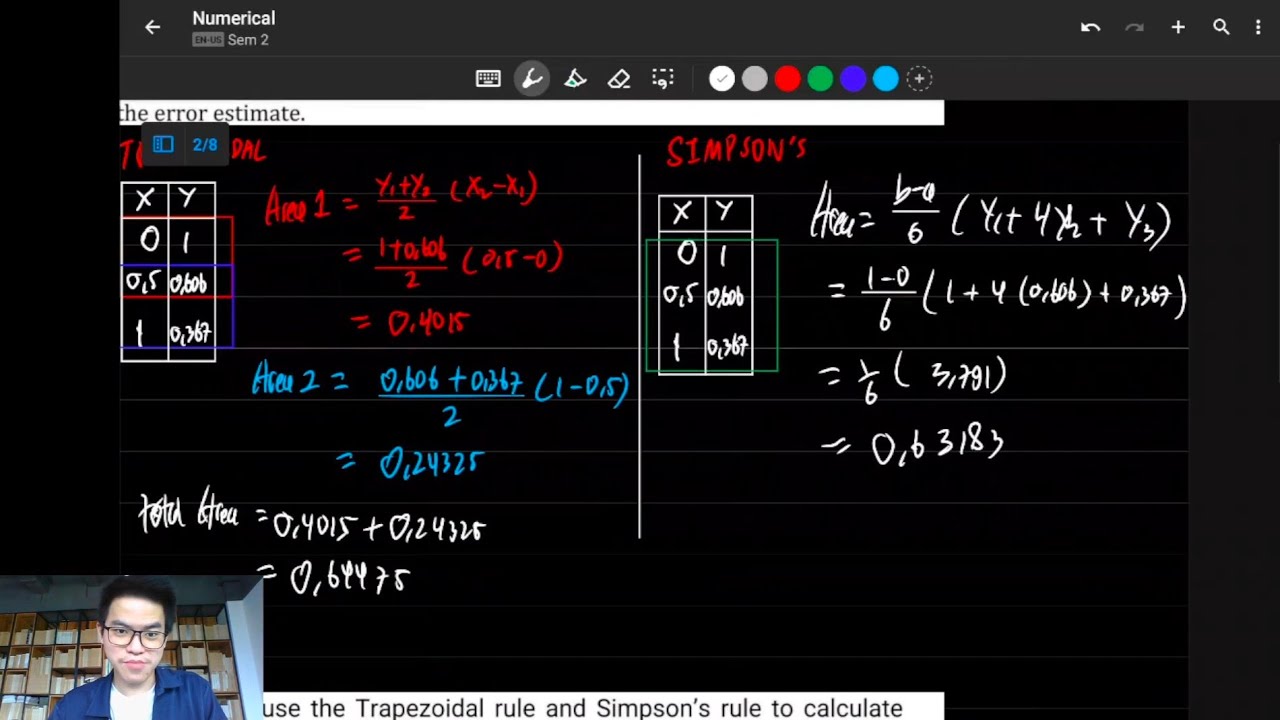 Numerical
EN-US Sem 2
the error estimate.
2/8
DAL
X Y
0 1
0,5 0,606
1 0,367
Area 1 = Y₁+Y₂/2 (X₂-X₁)
= 1+0,606/2 (0,5-0)
= 0,4015
Area 2 = 0,606+0,367/2 (1-0,5)
= 0,24325
total Area = 0,4015+0,24325
= 0,64475
SIMPSON'S
X Y
0 1
0,5 0,606
1 0,367
Area = b-a/6 (Y₁+4Y₂+Y₃)
= 1-0/6 (1+4(0,606)+0,367)
= 1/6 (3,791)
= 0,63183
use the Trapezoidal rule and Simpson's rule to calculate